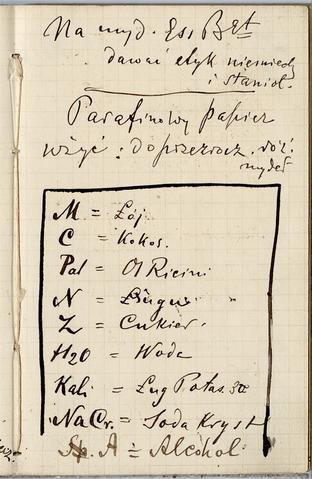 Na myd. Ess Bqt
dawać etyk niemiecką
i staniol.
Parafinowy papier
użyć: do przezrocz. róż:
mydeł
M = Łój
C = Kokos.
Pal = Ol Ricini
N =
Z = Cukier.
H2O = Woda
Kali = Ług Potas.
NaCr. = Soda Kryst
Sp. A = Alcohol